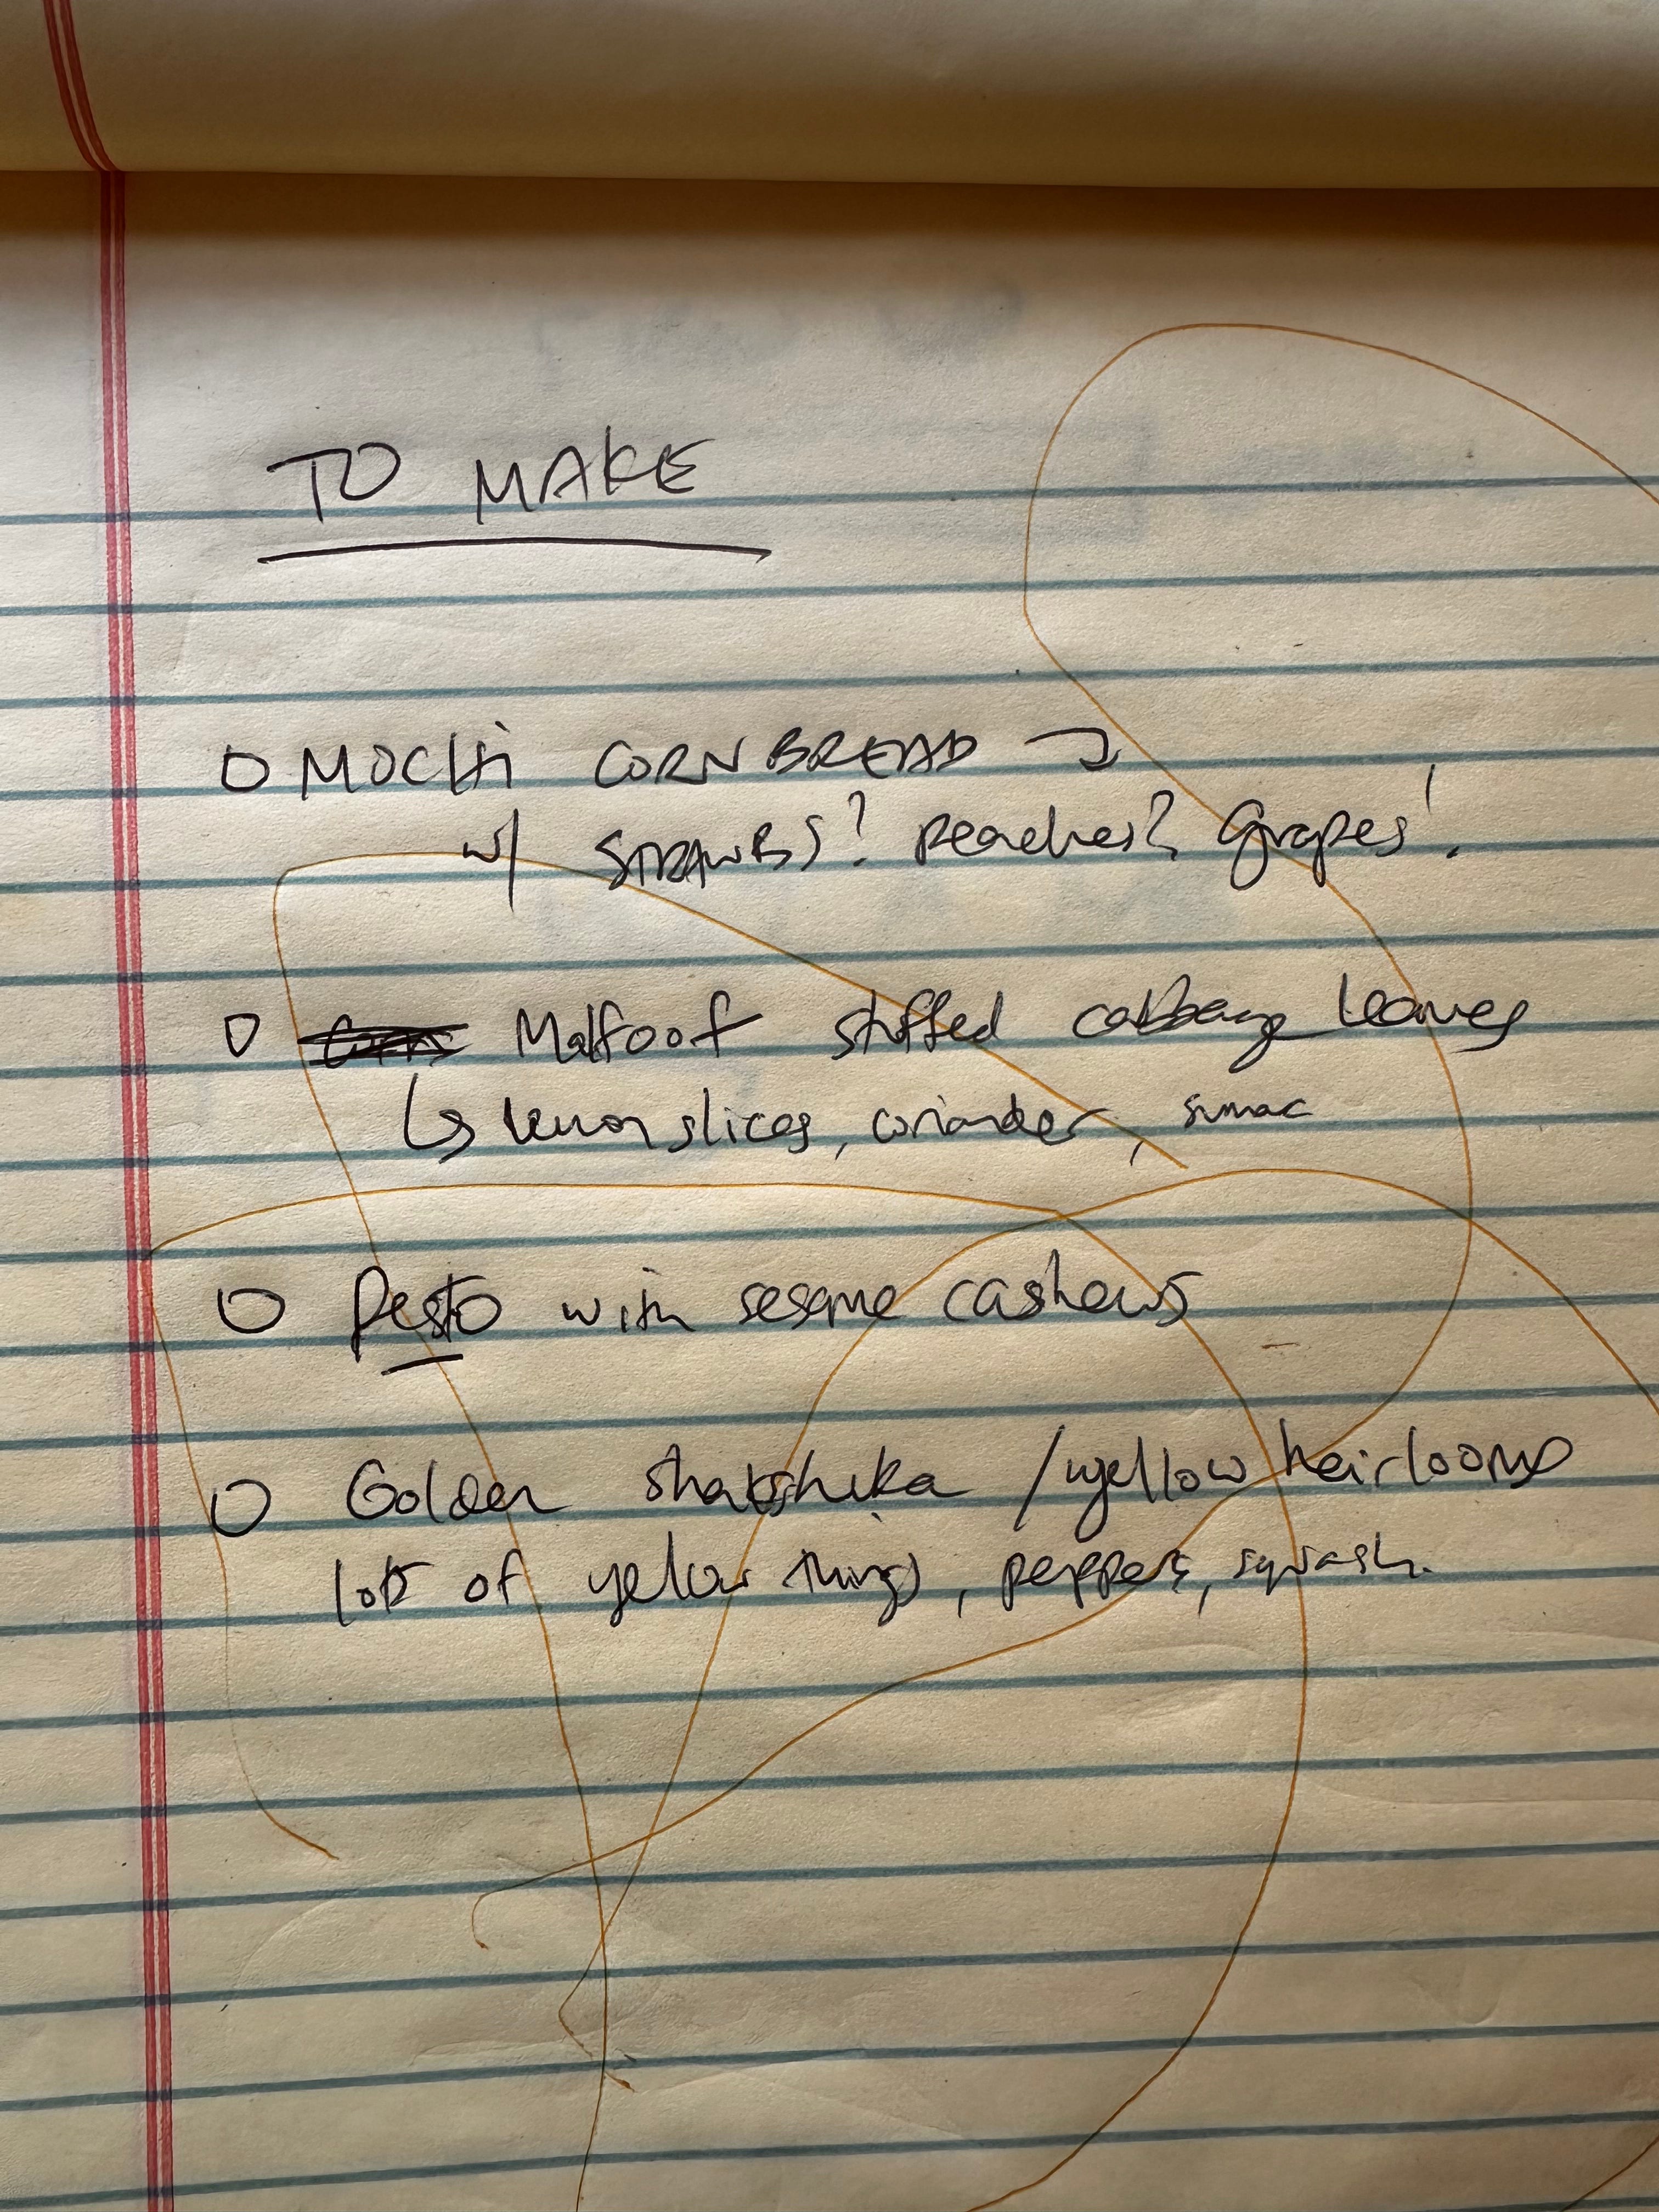 TO MAKE
MOCHi CORNBREAD
w/ STRAWBS? peaches? Grapes!
Malfoof stuffed cabbage leaves
lemon slices, coriander, sumac
Pesto with sesame cashews
Golden shakshuka / yellow heirlooms
lots of yellow things, peppers, squash.